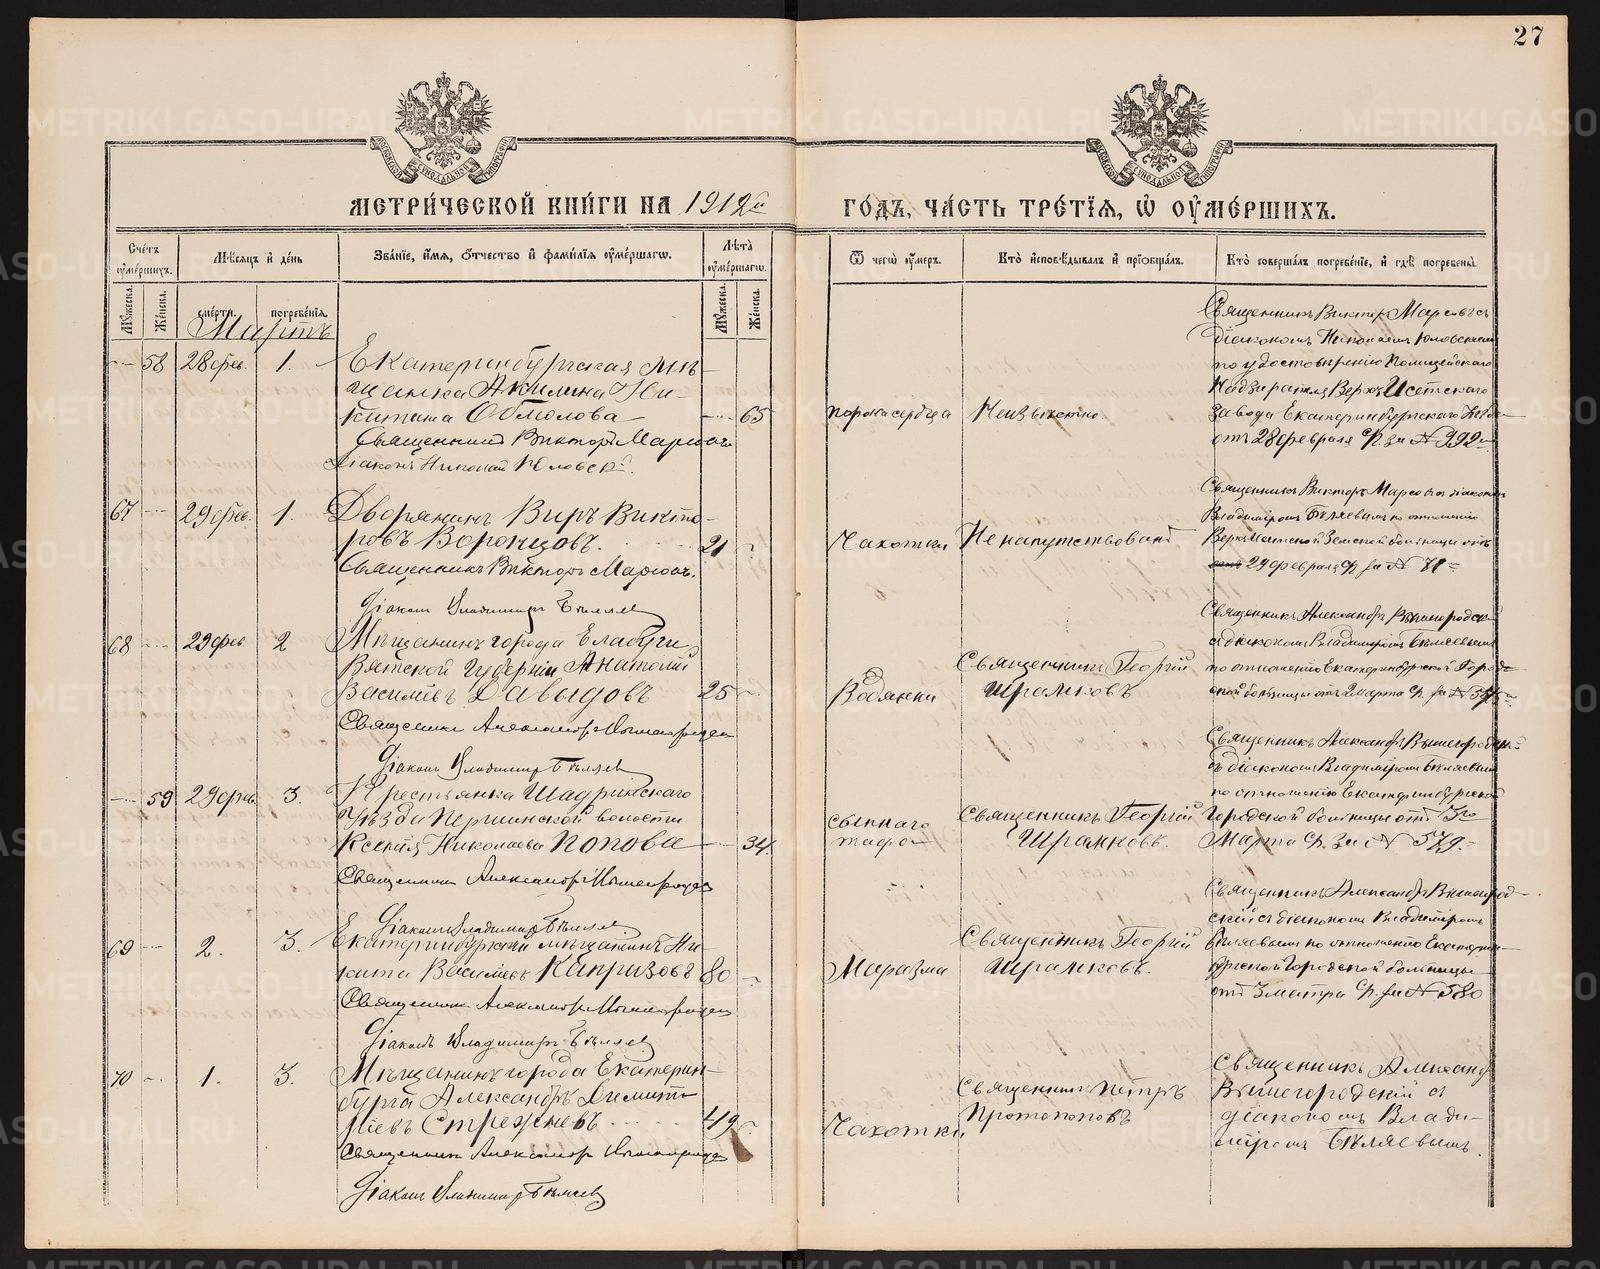 27
МЕТРИ́ЧЕСКОЙ КНИ́ГИ НА 1912й
ГО́ДЪ, ЧА́СТЬ ТРЕ́ТІѦ, Ѡ ОУМЕ́РШИХЪ.
Сче́тъ оуме́ршихъ.
Мѣ́сяцъ и де́нь
Зва́ніе, и́мя, ѻ́тчество и фами́лія оуме́ршагѡ.
Лѣ́та оуме́ршагѡ.
Ѿ чегѡ̀ оу́меръ.
Кто̀ исповѣ́дывалъ и прїобща́лъ.
Кто̀ соверша́лъ погребе́ніе, и гдѣ̀ погребены̀.
Мꙋ́жеска.
Же́нска.
сме́рти.
погребе́нія.
Мꙋ́жеска.
Же́нска.
Мартъ
58 28 фев. 1.
Екатеринбургская мѣ-
щанка Акилина Ни-
китина Обмолова 65
Священник Викторъ
Діаконъ Николай
порока сердца
Неизвѣстно.
Священникъ Викторъ
діакономъ Николаемъ
по удостовѣренію Полицейскаго
Надзирателя Верхъ Исетскаго
завода Екатеринбургскаго
отъ 28 февраля с/г. за № 992
67 29 фев. 1.
Дворянинъ Виръ Викто-
ровъ Воронцовъ. 21
Священникъ Викторъ
Діаконъ Владимиръ Бѣляев
Чахотки
Не напутствованъ
Священникъ Викторъ діаконом
Владимиромъ Бѣляевымъ по отношенію
Верхъ Исетской Земской больницы отъ
29 февраля с/г за № 71
68 29 фев 2
Мѣщанинъ города Елабуги,
Вятской губерніи Анатолій
Васильевъ Давыдовъ 25
Священник Александръ Вышегородск
Діаконъ Владимиръ Бѣляев
Водянки
Священникъ Георгій
Шрамковъ
Священникъ Александръ Вышегородскій
с діакономъ Владимиромъ Бѣляевымъ
по отношенію Екатеринбургской Город-
ской больницы отъ 2 марта с/г. за №
59 29 фев. 3.
Крестьянка Шадринскаго
Уѣзда Першинской волости
Ксенія Николаева Попова 34.
Священник Александръ Вышегородск
Діаконъ Владимиръ Бѣляев
сыпнаго
тифа
Священникъ Георгій
Шрамковъ.
Священникъ Александръ Вышегородскій
съ діакономъ Владимиромъ Бѣляевымъ
по отношенію Екатеринбургской
Городской больницы отъ 3го
Марта с/г. за № 579.
69 2. 3.
Екатеринбургскій мѣщанинъ Ни-
кита Васильевъ Капризовъ 80
Священник Александръ Вышегородск
Діаконъ Владимиръ Бѣляев
Маразма
Священникъ Георгій
Шрамковъ.
Священникъ Александръ Вышегород-
скій съ діакономъ Владимиромъ
Бѣляевымъ по отношенію Екатерин-
бургской Городской больницы
отъ 3 марта с/г. за № 580
70 1. 3.
Мѣщанинъ города Екатерин-
бурга Александръ Димит-
ріевъ Стрежневъ 49
Священник Александръ Вышегородск
Діаконъ Владимиръ Бѣляев
Чахотки
Священникъ Петръ
Протопоповъ
Священникъ Александр
Вышегородскій с
діакономъ Влади-
миромъ Бѣляевымъ.
METRIKI.GASO-URAL.RU